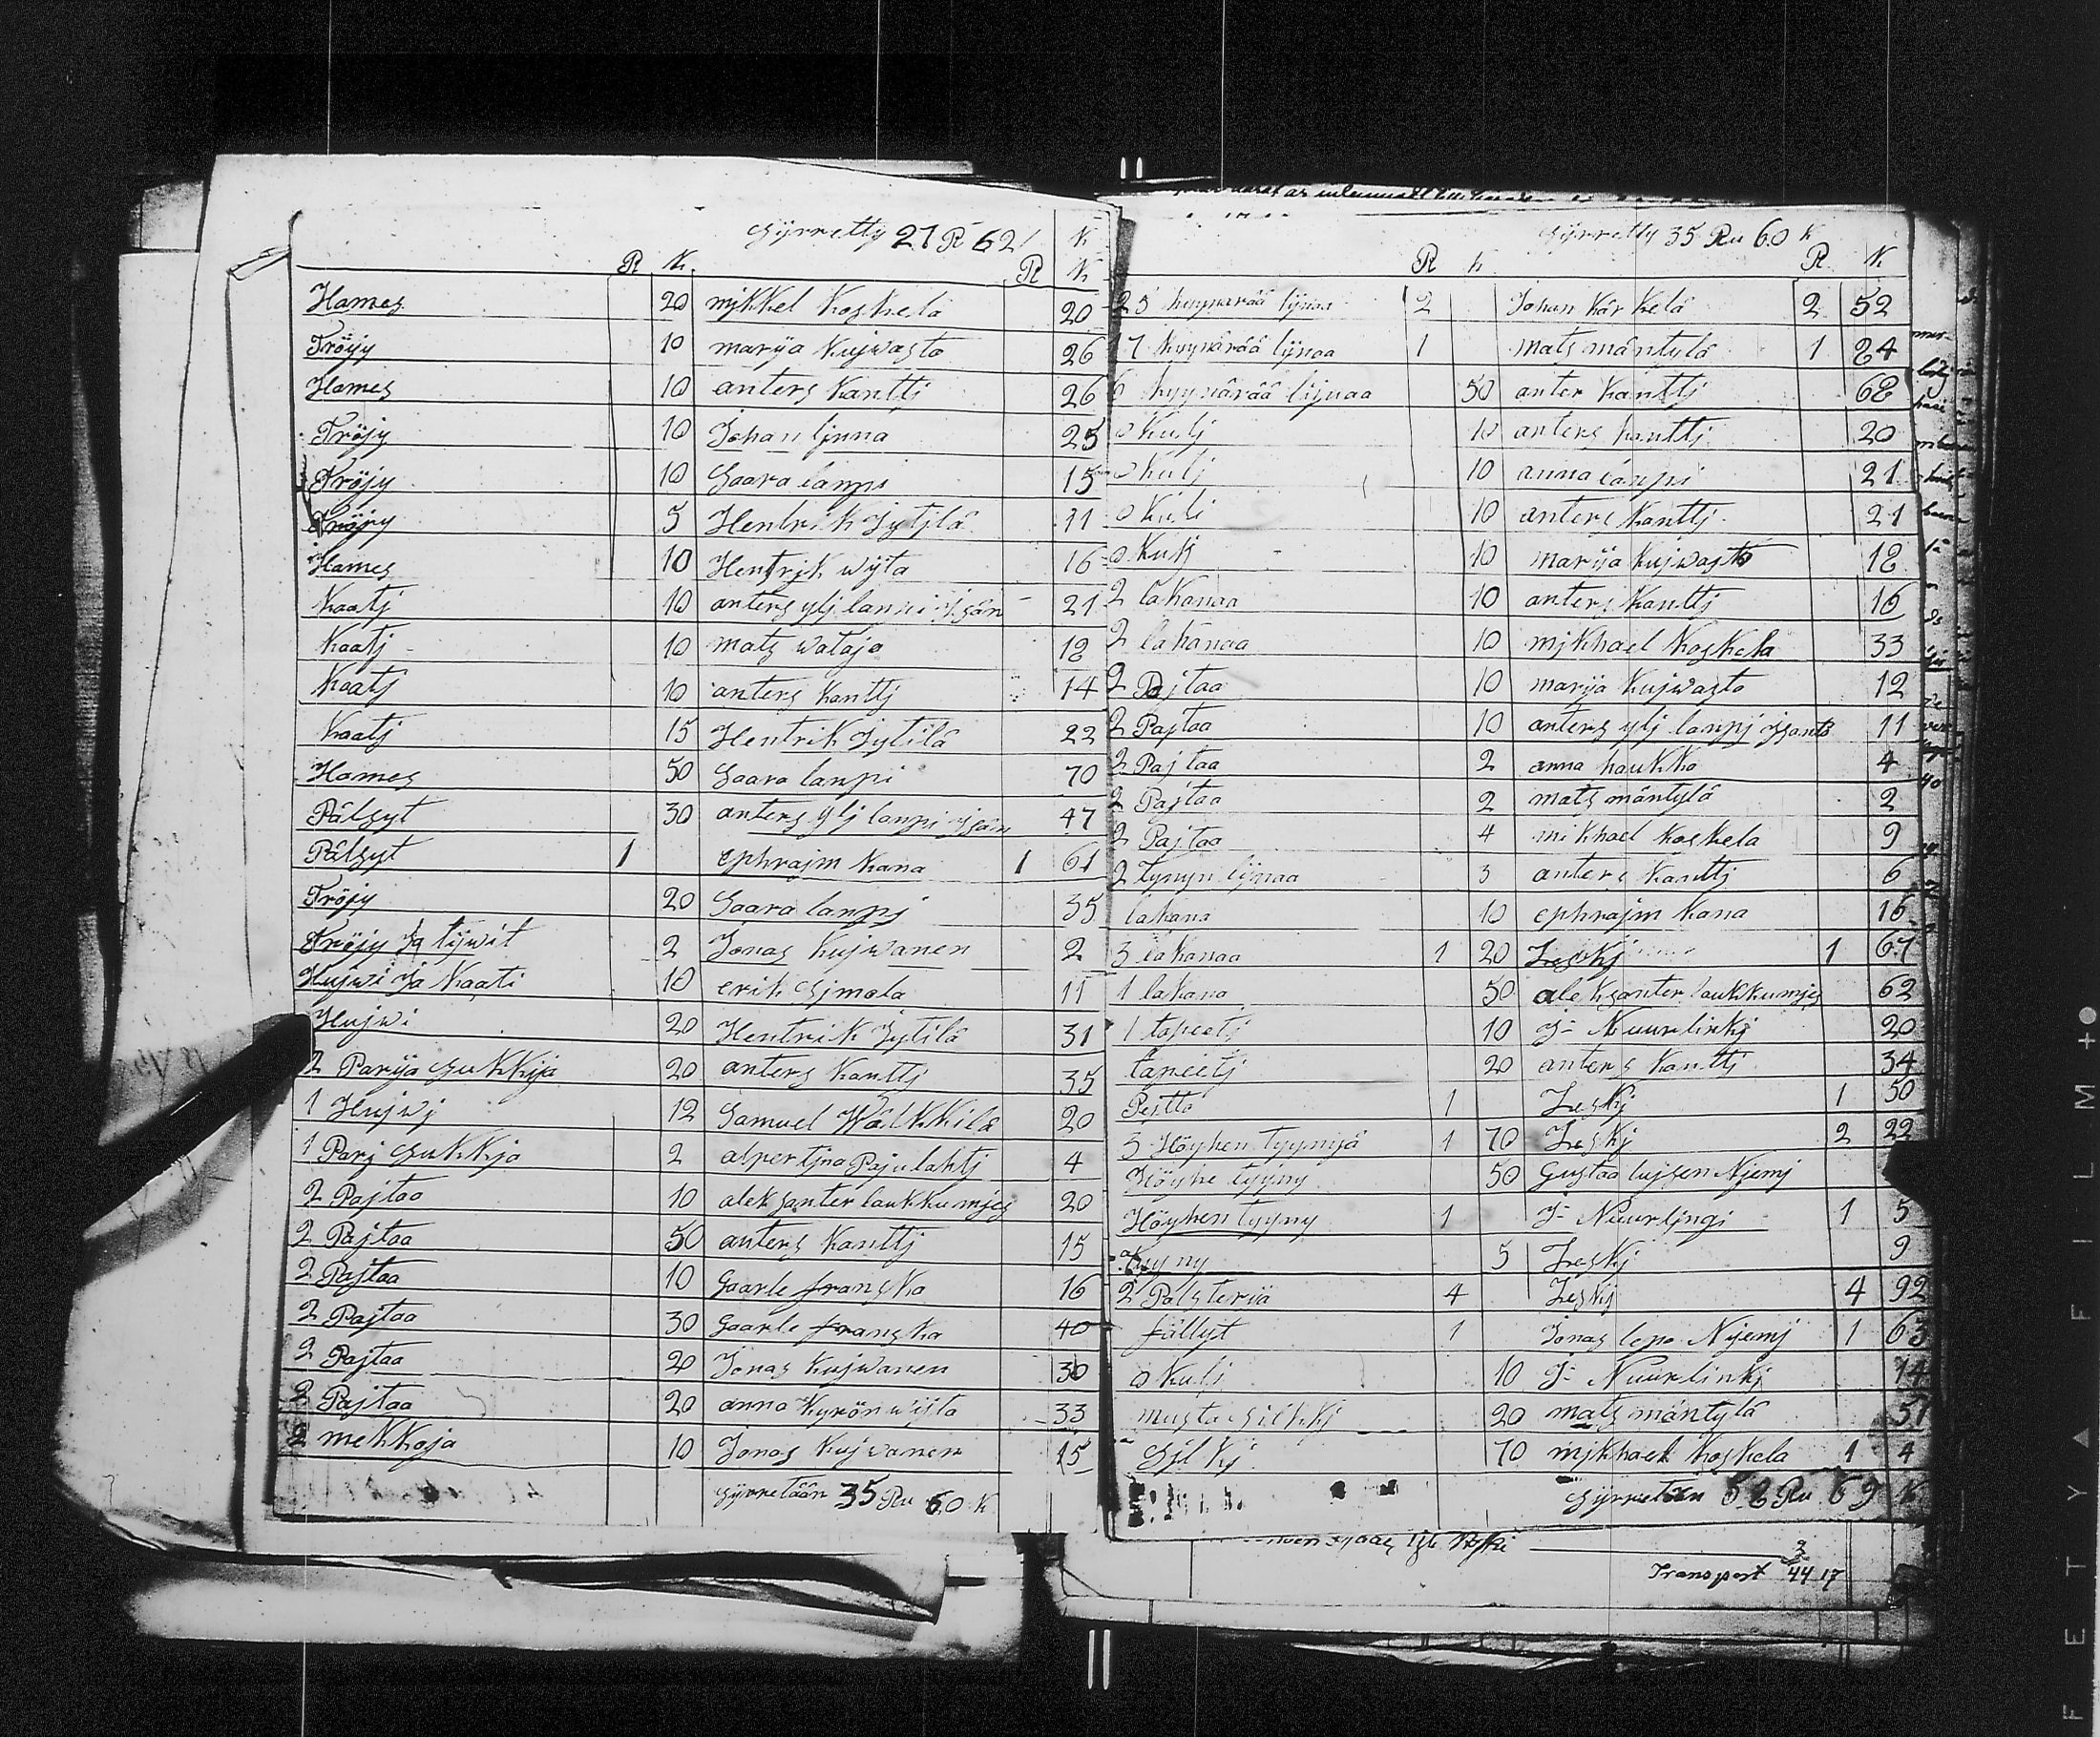 Syrretty 27 R 62
K
R K R K
Hames 20 mjkkel Koskela 20
Tröjy 10 marija Kujwasto 26
Hames 10 anters Kanttj 26
Tröjy 10 Johan ljnna 25
Tröjy 10 Saara lanpi 15
Tröjy 5 Hentrik Jytilä 11
Hames 10 Hentrjk wijta 16
Kaatj 10 anters ylj lanpi Jsän 21
Kaatj 10 mats watajo 12
Kaatj 10 anters Kanttj 14
Kaatj 15 Hentrik Jytilä 22
Hames 50 Saara lanpi 70
Pälsyt 30 anters ylj lanpi Jsän 47
Pälsyt 1 ephrajm Kana 1 61
Tröjy 20 Saara lanpj 35
Tröjy Ja lijwit 2 Jonas Kujwanen 2
Hujwi Ja Kaati 10 erik Sjmola 11
Hujwi 20 Hentrik Jytilä 31
2 Parija Sukkija 20 anters Kanttj 35
1 Hujwj 12 Samuel Wälkkilä 20
1 Parj Sukkja 2 alpertjna Pajulahtj 4
2 Pajtaa 10 aleksanter laukkumjes 20
2 Pajtaa 50 anters Kanttj 15
2 Pajtaa 10 Gaarle franska 16
2 Pajtaa 30 Gaarle franska 40
2 Pajtaa 20 Jonas Kujwanen 30
2 Pajtaa 20 anna Kyrönwijta 33
2 mekkoja 10 Jonas Kujwanen 15
Syrretään 35 Ru 60 K
Syrretty 35 Ru 60 K
R K R K
25 kuynärää lijnaa 2 Johan Kärkelä 2 52
17 kuynärää lijnaa 1 mats mäntylä 1 24
6 kyynärää lijnaa 50 anter Kanttj 62
o Kulj 10 anters Kanttj 20
o Kulj 10 anna lanpi 21
o Kuli 10 anters Kanttj 21
o Kulj 10 marija Kujwasto 12
2 lakanaa 10 anters Kanttj 16
2 lakanaa 10 mjkhael Koskela 33
2 Pajtaa 10 marija Kujwasto 12
2 Pajtaa 10 anters ylj lanpj Jsäntä 11
2 Pajtaa 2 anna haukka 4
2 Pajtaa 2 mats mäntylä 2
2 Pajtaa 4 mikhael Koskela 9
2 Tynyn lijnaa 3 anters Kanttj 6
lakana 10 ephrajm Kana 16
3 lakanaa 1 20 Leskj 1 67
1 lakana 50 aleksanter laukkumjes 62
1 tapeetj 10 J- Nuurlinkj 20
tapeetj 20 anters Kanttj 34
Peitto 1 Leskj 1 50
3 Höyhen tyynyjä 1 70 Leskj 2 22
Höyhe tyyny 50 Gustaa lujsen Njemj
Höyhen tyyny 1 J- Nuurljngi 1 5
tyyny 5 Leskj 9
2 Polsterija 4 Leskj 4 92
fällyt 1 Jonas lepo Njemj 1 63
o Kulj 10 J- Nuurlinkj
musta silkkj 20 mats mäntylä 51
Sjlkj 70 mjkhael Koskela 1 4
Syrretään 52 Ru 69 K
Transport 44 17
FETY ▲ FILM